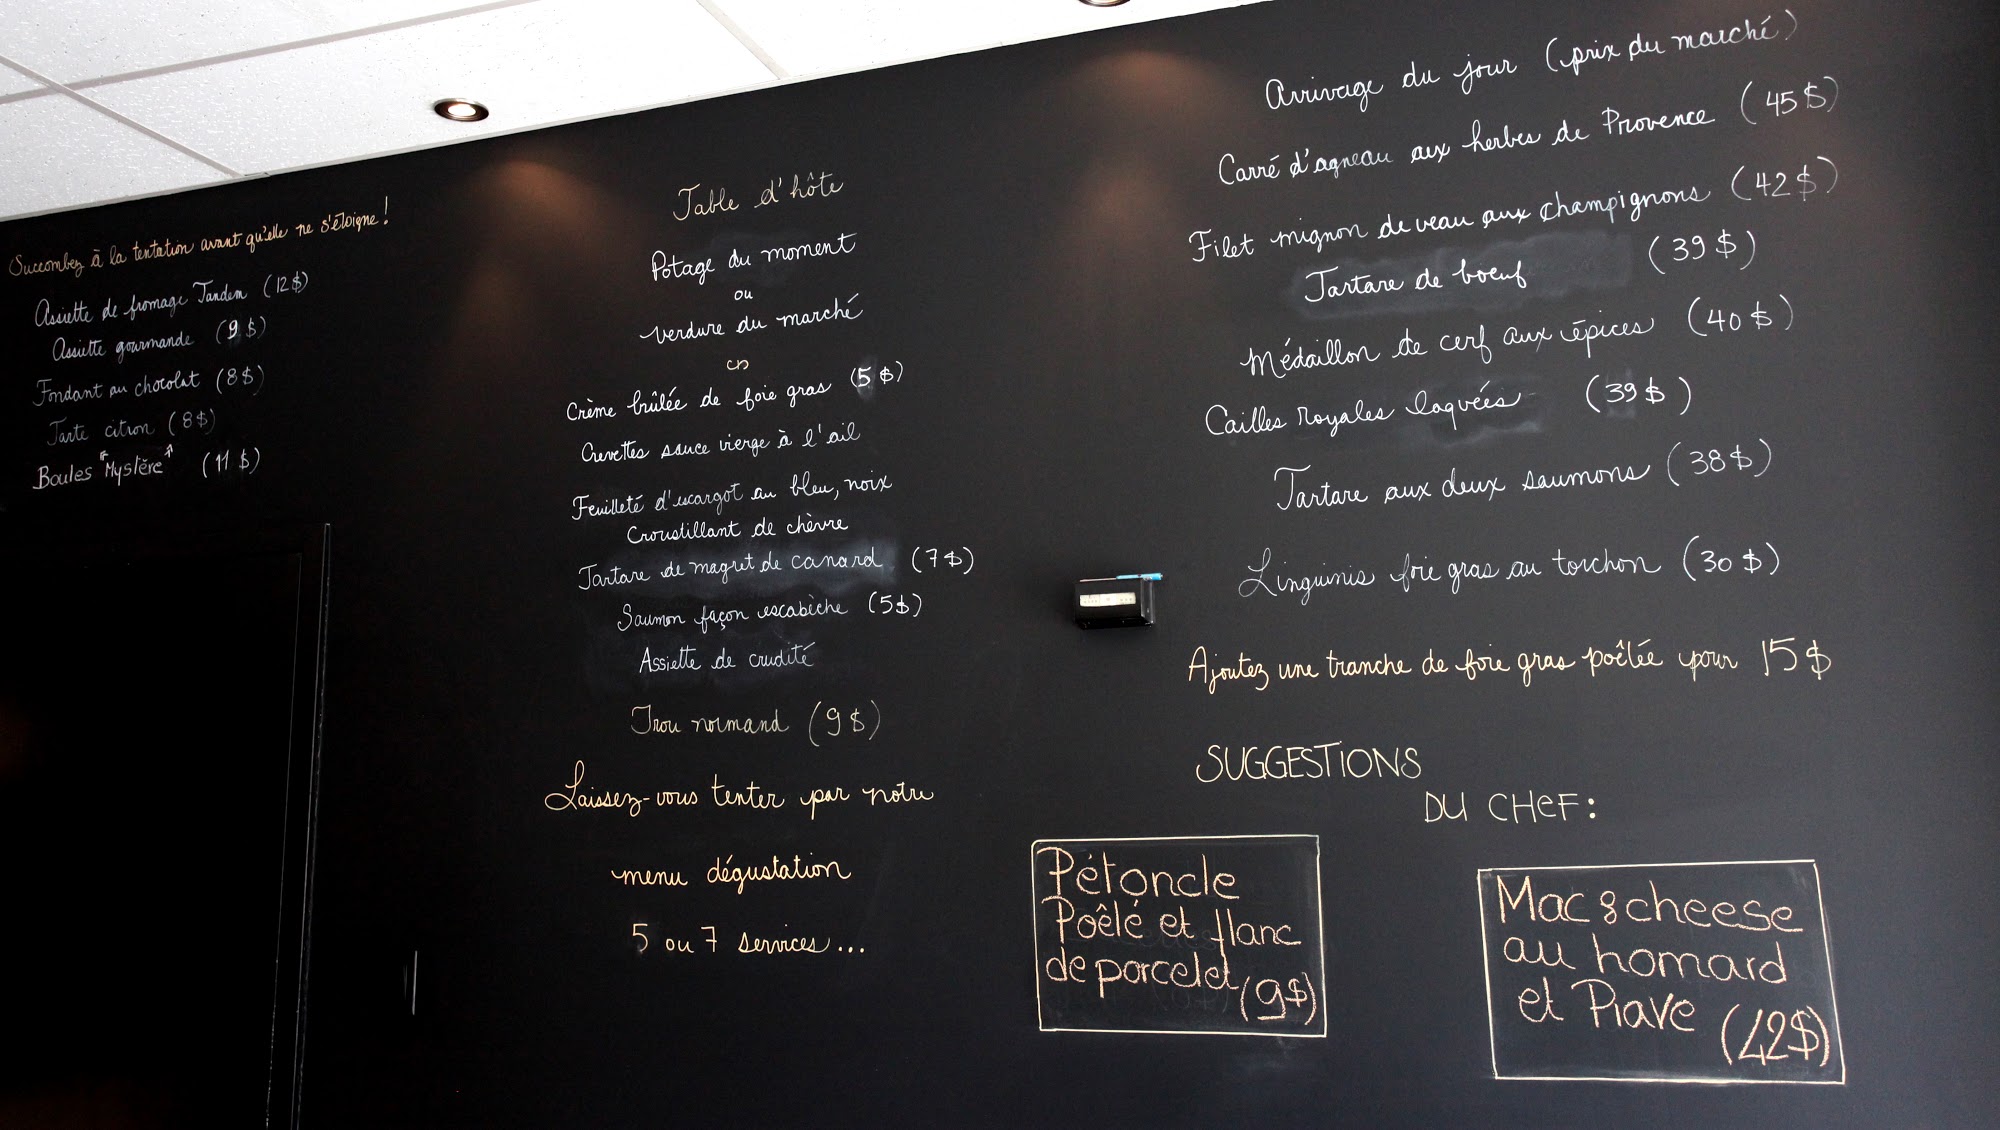 Succombez à la tentation avant qu'elle ne s'éloigne!
Assiette de fromage Tandem (12$)
Assiette gourmande (9$)
Fondant au chocolat (8$)
Tarte citron (8$)
Boules "Mystère" (11$)
Table d'hôte
Potage du moment
ou
verdure du marché
Crème brûlée de foie gras (5$)
Crevettes sauce vierge à l'ail
Feuilleté d'escargot au bleu, noix
Croustillant de chèvre
Tartare de magret de canard (7$)
Saumon façon escabèche (5$)
Assiette de crudité
Trou normand (9$)
Laissez-vous tenter par notre
menu dégustation
5 ou 7 services...
Arrivage du jour (prix du marché)
Carré d'agneau aux herbes de Provence (45$)
Filet mignon de veau aux champignons (42$)
Tartare de boeuf (39$)
Médaillon de cerf aux épices (40$)
Cailles royales laquées (39$)
Tartare aux deux saumons (38$)
Linguinis foie gras au torchon (30$)
Ajoutez une tranche de foie gras poêlée pour 15$
SUGGESTIONS
DU CHEF:
Pétoncle
Poêlé et flanc
de porcelet (9$)
Mac & cheese
au homard
et Piave (42$)